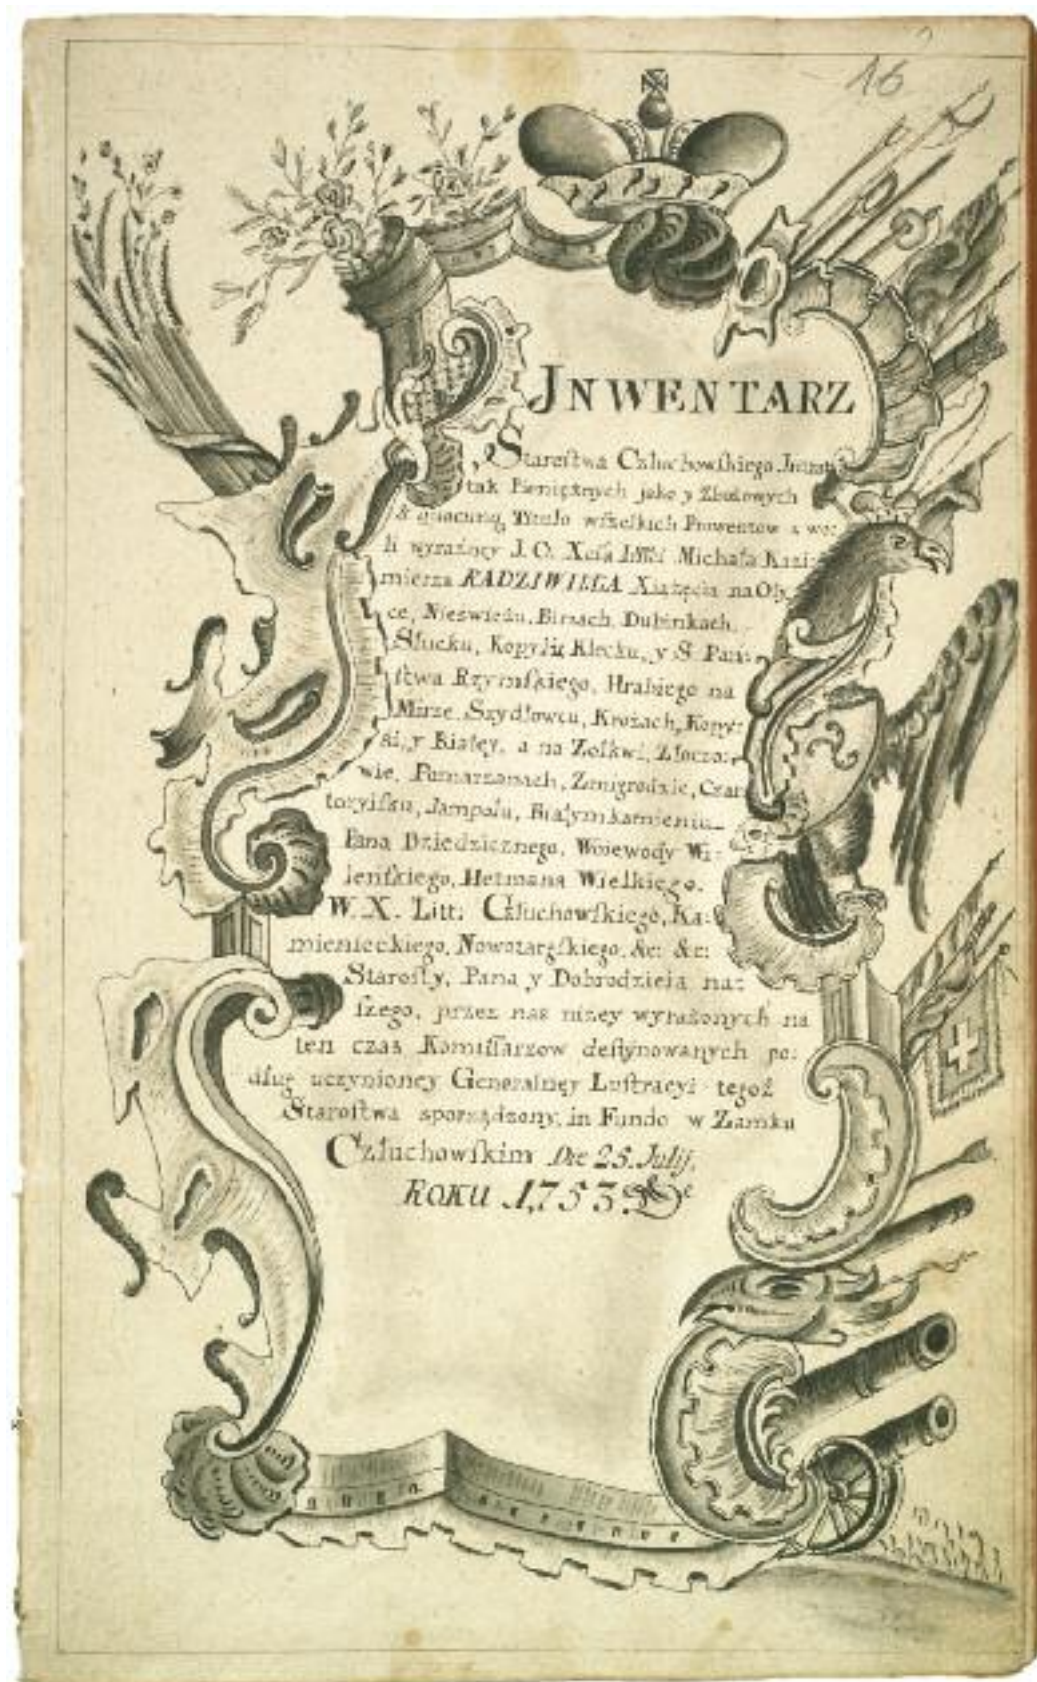 16
JNWENTARZ
Staroſtwa Człuchowſkiego
tak Pieniężnych jako y Zbożowych
Titulo wſzelkich Prowentow z
wyraźney J. O. Michała Kazi-
mierza RADZIWIŁŁA Xiążęcia na Oły
ce, Nieswieżu, Birzach, Dubinkach,
Słucku, Kopylu Klecku, y S. Pań:
ſtwa Rzymſkiego, Hrabiego na
Mirze, Szydłowcu, Krożach, Kopy:
si, y Białey, a na Zołkwi, Złoczo:
wie, Pomarzanach, Zmigrodzie, Czar
toryiſku, Jampolu, Białymkamieniu
Pana Dziedzicznego, Woiewody Wi:
leńſkiego, Hetmana Wielkiego.
W. X. Litt: Człuchowſkiego, Ka:
mienieckiego, Nowotargſkiego, &c: &c:
Staroſty, Pana y Dobrodzieia na:
ſzego, przez nas niżey wyrażonych na
ten czas Komiſſarzow deſtynowanych po:
dług uczynioney Generalney Luſtracyi tegoż
Staroſtwa sporządzony, in Fundo w Zamku
Człuchowſkim Die 25. Julij.
ROKU 1753.